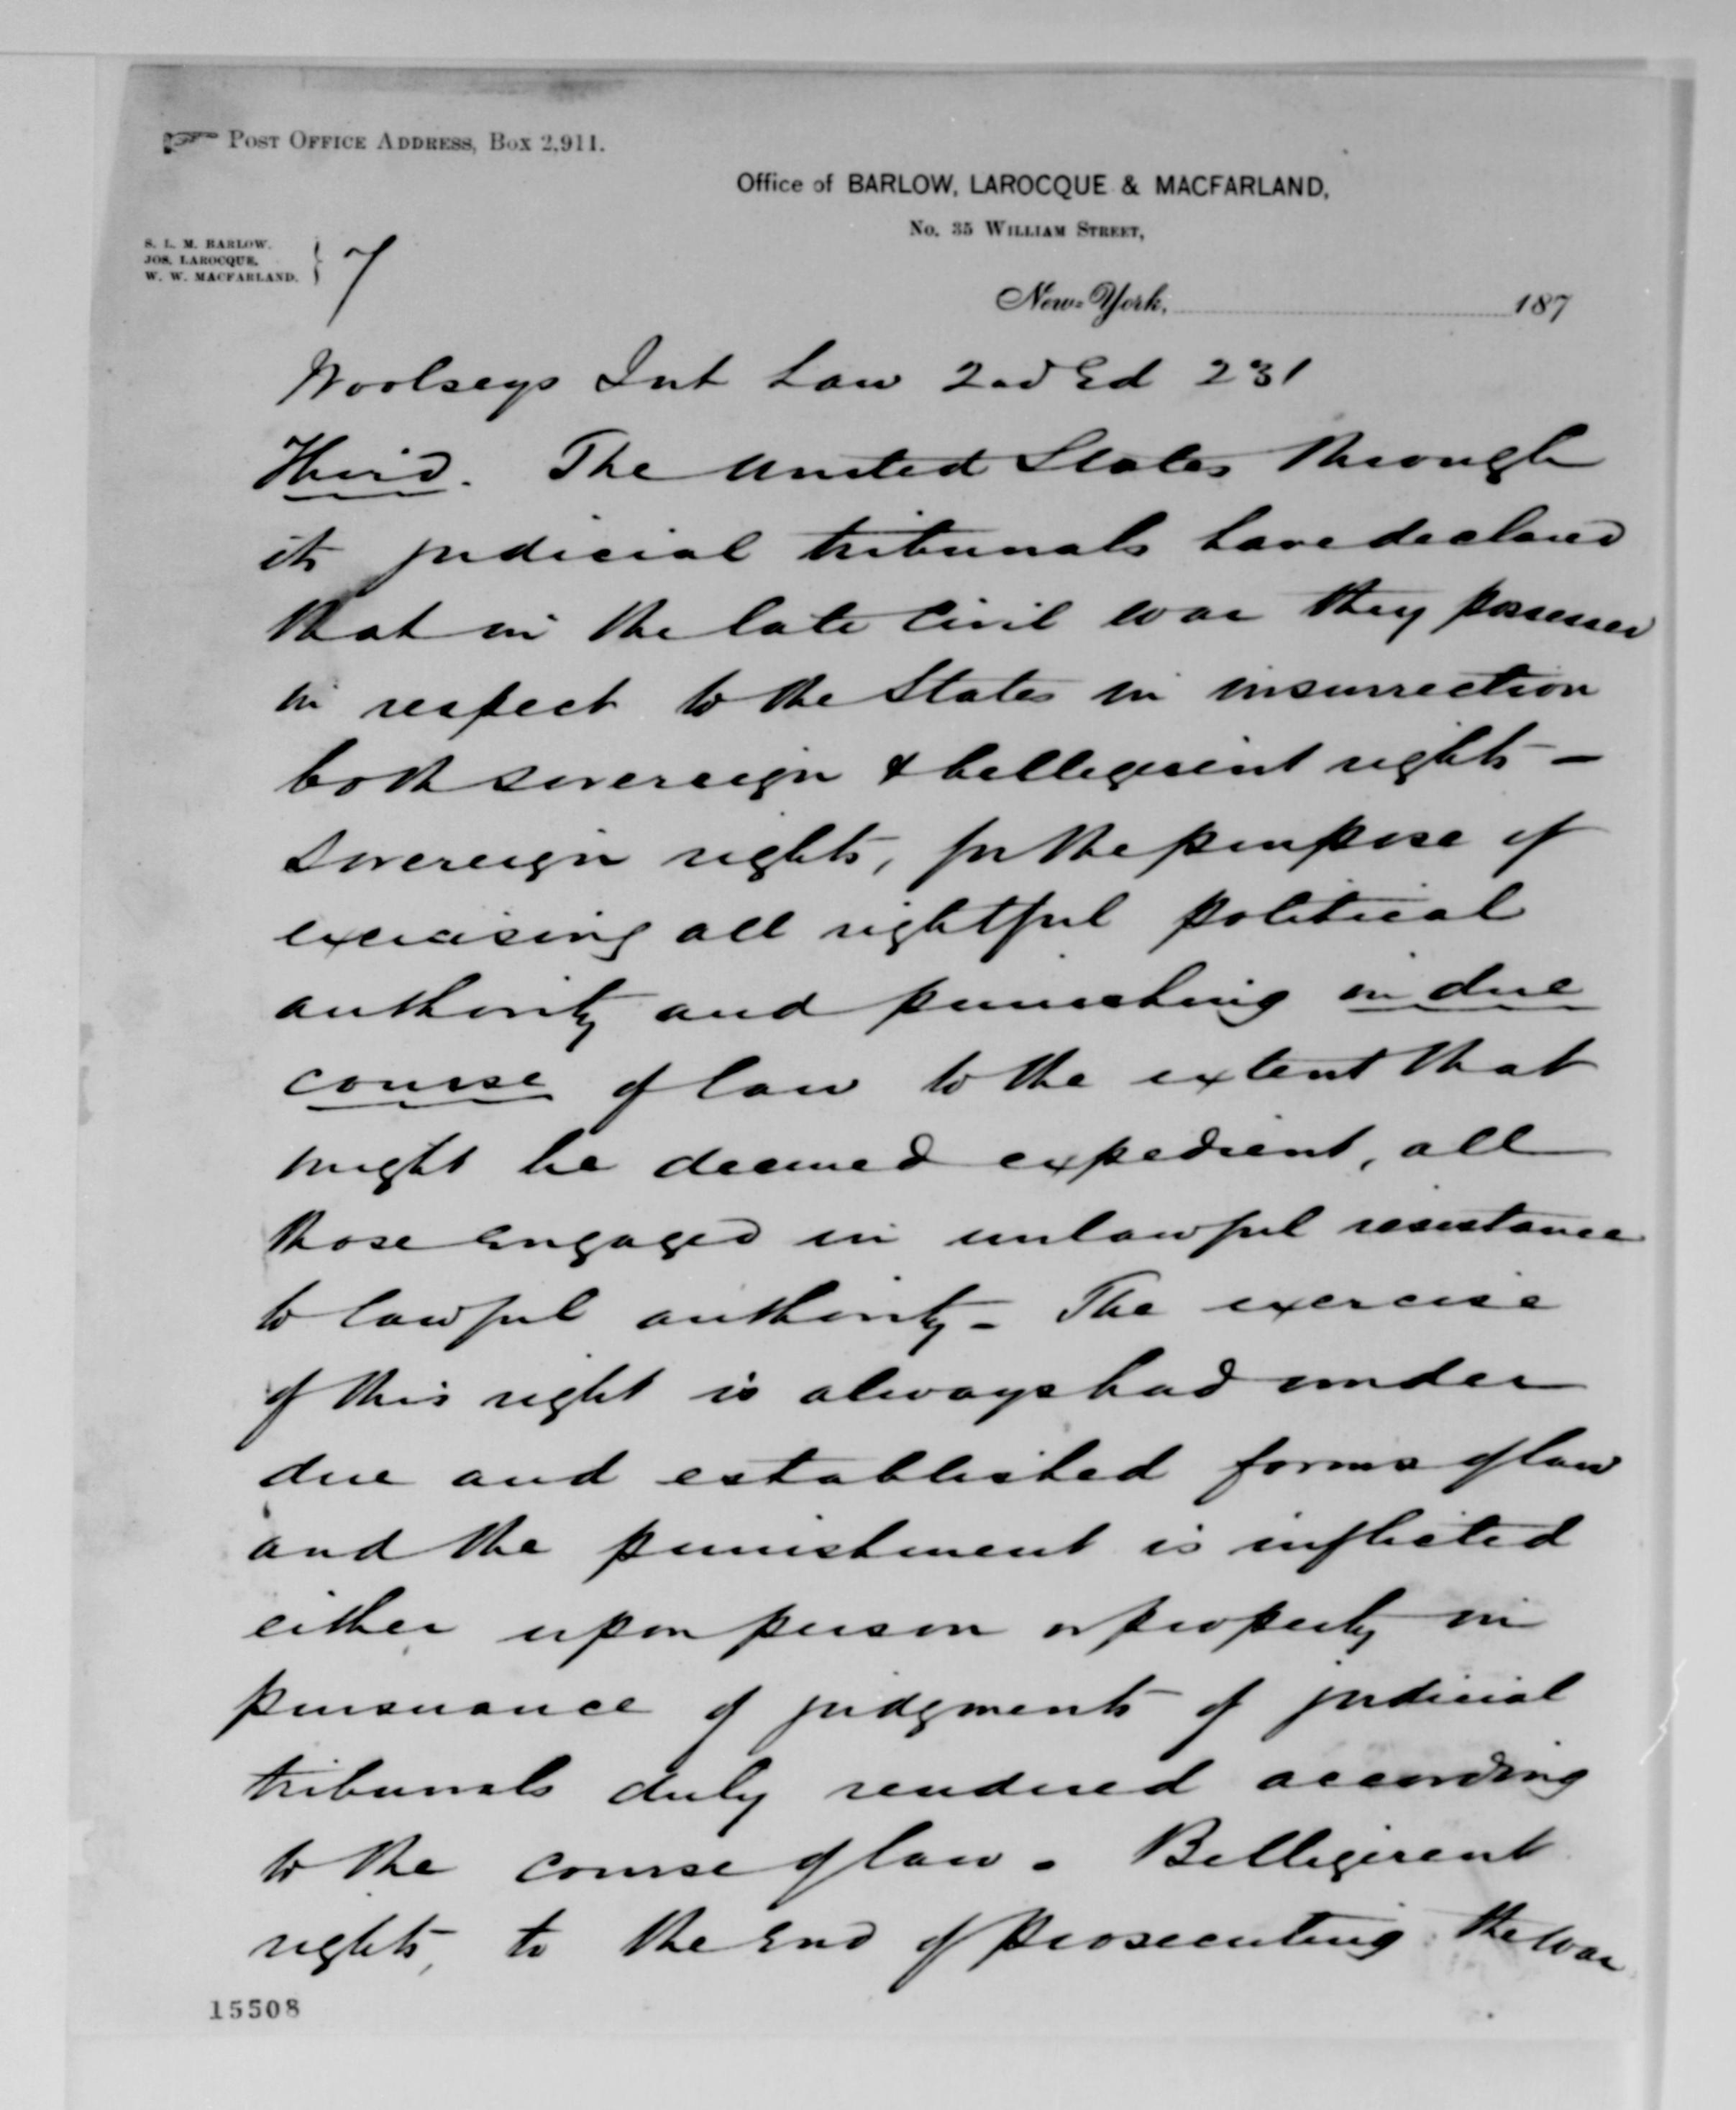 ☞ Post Office Address, Box 2,911.
Office of BARLOW, LAROCQUE & MACFARLAND,
No. 35 William Street,
S. L. M. BARLOW.
JOS. LAROCQUE.
W. W. MACFARLAND.
7
New-York, 187
Woolseys Int Law 2nd Ed 231
Third. The United States through
its judicial tribunals have declared
that in the late Civil war they possessed
in respect to the States in insurrection
both sovereign & belligerent rights —
Sovereign rights, for the purpose of
exercising all rightful political
authority and punishing in due
course of law to the extent that
might be deemed expedient, all
those engaged in unlawful resistance
to lawful authority - The exercise
of this right is always had under
due and established forms of law
and the punishment is inflicted
either upon person or property in
pursuance of judgments of judicial
tribunals duly rendered according
to the course of law. Belligerent
rights, to the End of prosecuting the war
15508